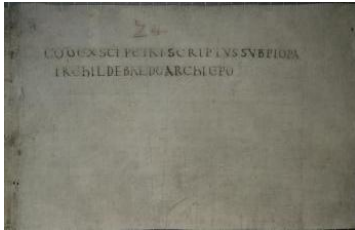 24
CODEX SCI PETRI SCRIPTVS SVB PIO PA
TRE HILDEBALDO ARCHIEPO